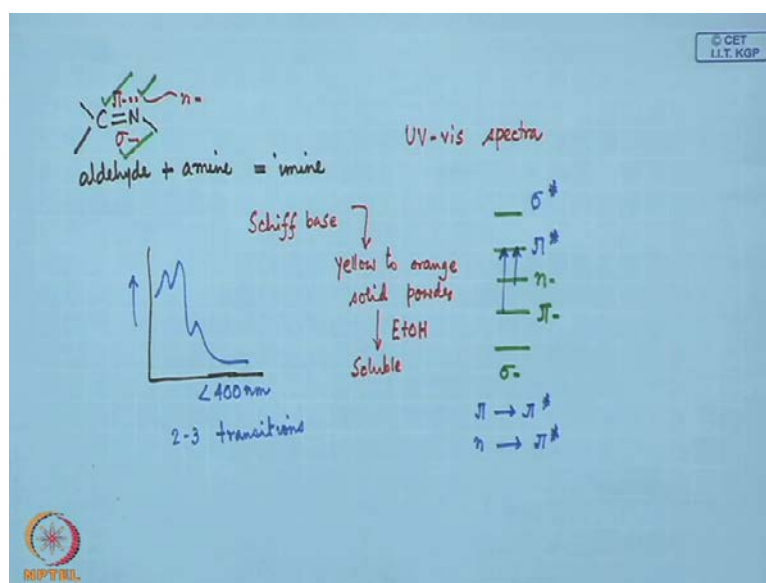 © CET
I.I.T. KGP
π n-
C=N
σ-
aldehyde + amine = imine
UV-vis spectra
Schiff base
yellow to orange
solid powder
EtOH
Soluble
<400nm
2-3 transitions
σ*
π*
n-
π-
σ-
π → π*
n → π*
NPTEL